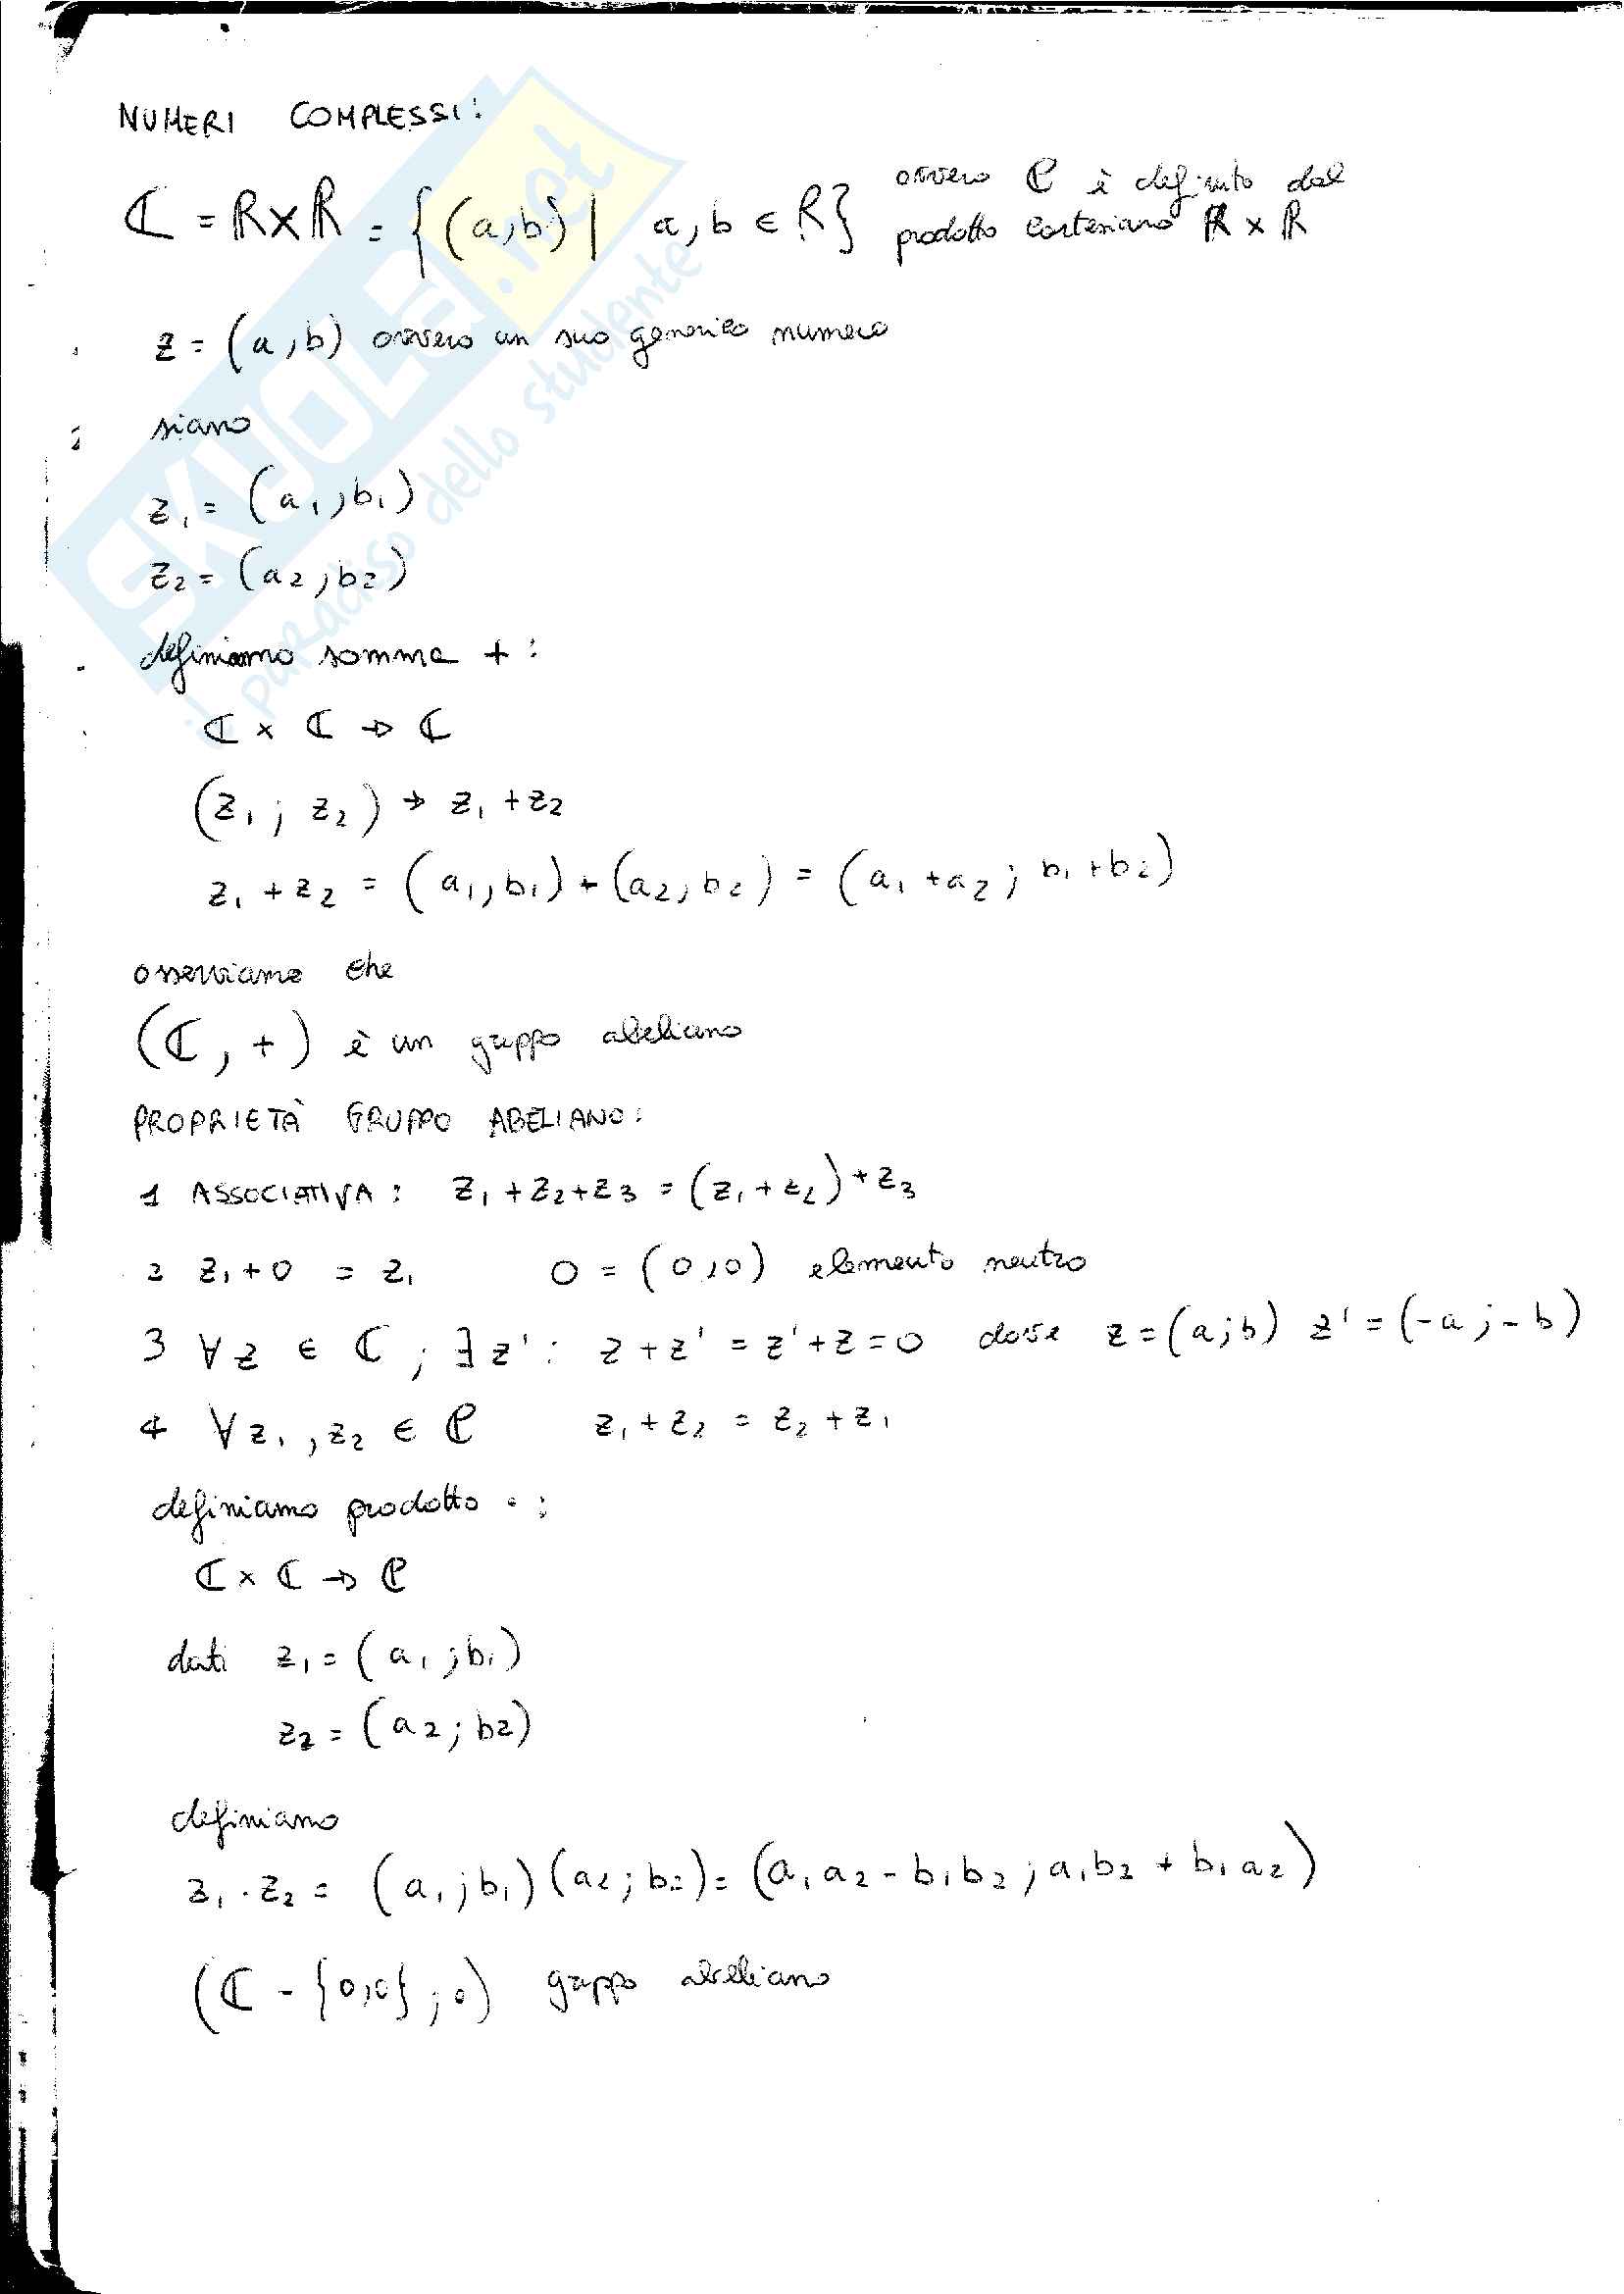 NUMERI COMPLESSI:
ℂ = ℝ×ℝ = {(a,b)| a,b ∈ ℝ} ovvero ℂ è definito dal
prodotto cartesiano ℝ × ℝ
z = (a,b) ovvero un suo generico numero
siano
z₁ = (a₁,b₁)
z₂ = (a₂,b₂)
definiamo somma + :
ℂ × ℂ → ℂ
(z₁ ; z₂) → z₁ + z₂
z₁ + z₂ = (a₁,b₁) + (a₂,b₂) = (a₁ + a₂ ; b₁ + b₂)
osserviamo che
(ℂ, +) è un gruppo abeliano
PROPRIETÀ GRUPPO ABELIANO:
1 ASSOCIATIVA : z₁ + z₂ + z₃ = (z₁ + z₂) + z₃
2 z₁ + 0 = z₁ 0 = (0,0) elemento neutro
3 ∀ z ∈ ℂ ; ∃ z' : z + z' = z' + z = 0 dove z = (a;b) z' = (-a ; -b)
4 ∀ z₁, z₂ ∈ ℂ z₁ + z₂ = z₂ + z₁
definiamo prodotto • :
ℂ × ℂ → ℂ
dati z₁ = (a₁ ; b₁)
z₂ = (a₂ ; b₂)
definiamo
z₁ · z₂ = (a₁ ; b₁) (a₂ ; b₂) = (a₁a₂ - b₁b₂ ; a₁b₂ + b₁a₂)
(ℂ - {0,0} ; •) gruppo abeliano
SKUOLA.net
il paradiso dello studente